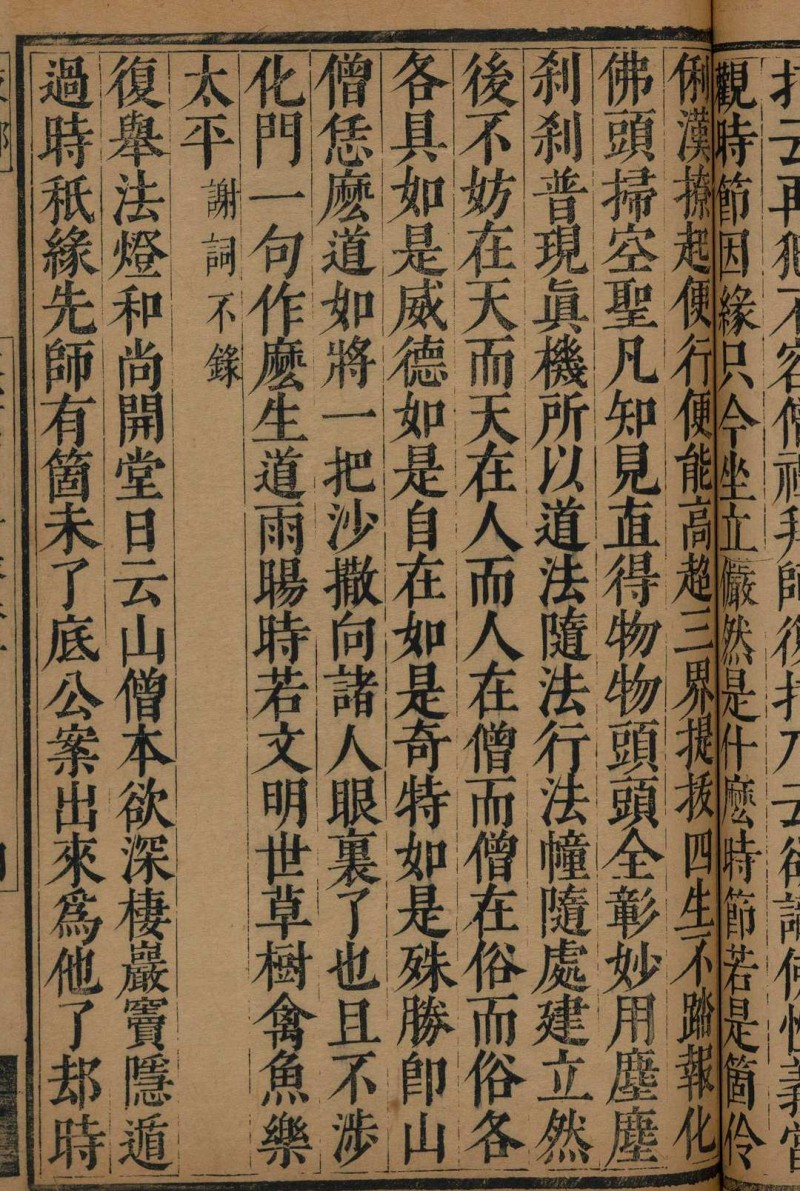 打云再犯不容僧禮拜師復打乃云欲識佛性義當
觀時節因緣只今坐立儼然是什麼時節若是箇伶
俐漢撩起便行便能高超三界提拔四生不踏報化
佛頭掃空聖凡知見直得物物頭頭全彰妙用塵塵
刹刹普現眞機所以道法隨法行法幢隨處建立然
後不妨在天而天在人而人在僧而僧在俗而俗各
各具如是威德如是自在如是奇特如是殊勝卽山
僧恁麽道如將一把沙撒向諸人眼裏了也且不涉
化門一句作麽生道雨暘時若文明世草樹禽魚樂
太平謝詞不錄
復舉法燈和尚開堂日云山僧本欲深棲巖竇隱遁
過時秖緣先師有箇未了底公案出來爲他了却時